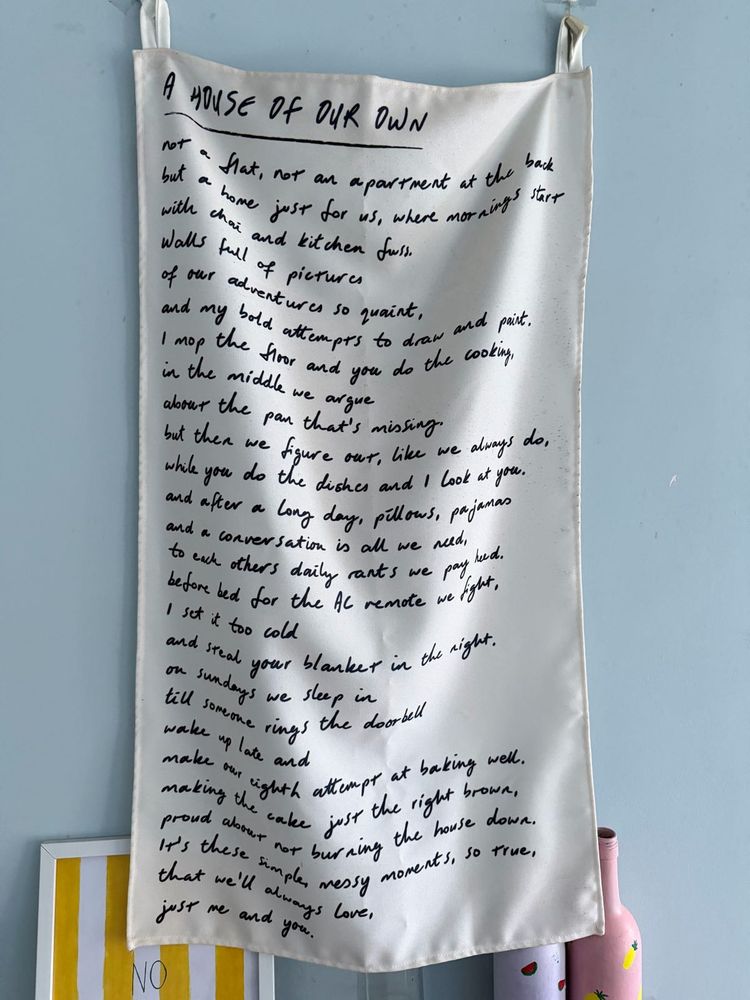 A HOUSE OF OUR OWN
not a flat, not an apartment at the back
but a home just for us, where mornings start
with chai and kitchen fuss.
Walls full of pictures
of our adventures so quaint,
and my bold attempts to draw and paint.
I mop the floor and you do the cooking,
in the middle we argue
about the pan that's missing.
but then we figure out, like we always do,
while you do the dishes and I look at you.
and after a long day, pillows, pajamas
and a conversation is all we need,
to each others daily rants we pay heed.
before bed for the AC remote we fight,
I set it too cold
and steal your blanket in the night.
on sundays we sleep in
till someone rings the doorbell
wake up late and
make our eighth attempt at baking well.
making the cake just the right brown,
proud about not burning the house down.
It's these simple, messy moments, so true,
that we'll always love,
just me and you.
NO